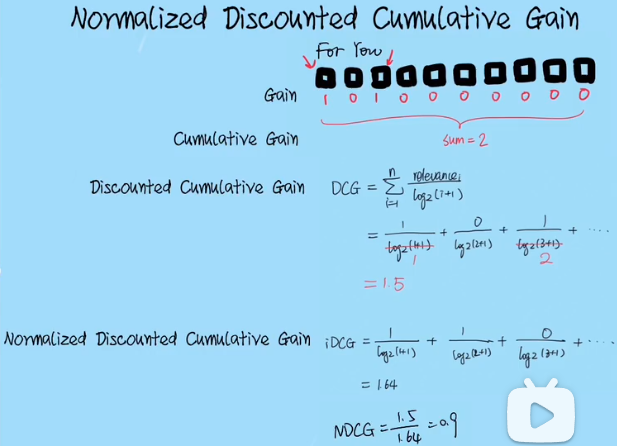 Normalized Discounted Cumulative Gain
For You
Gain 1 0 1 0 0 0 0 0 0 0
Cumulative Gain sum = 2
Discounted Cumulative Gain DCG = n∑i=1 relevanceᵢ / log2(i+1)
= 1/log2(1+1) + 0/log2(2+1) + 1/log2(3+1) + ....
1 2
= 1.5
Normalized Discounted Cumulative Gain iDCG = 1/log2(1+1) + 1/log2(2+1) + 0/log2(3+1) + ....
= 1.64
NDCG = 1.5/1.64 = 0.9